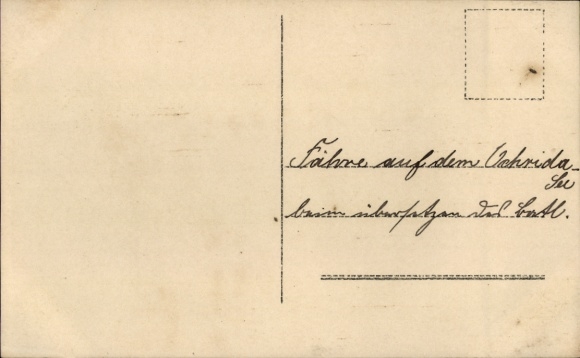 Fähre auf dem Ochrida-
See
beim übersetzen des Batl.